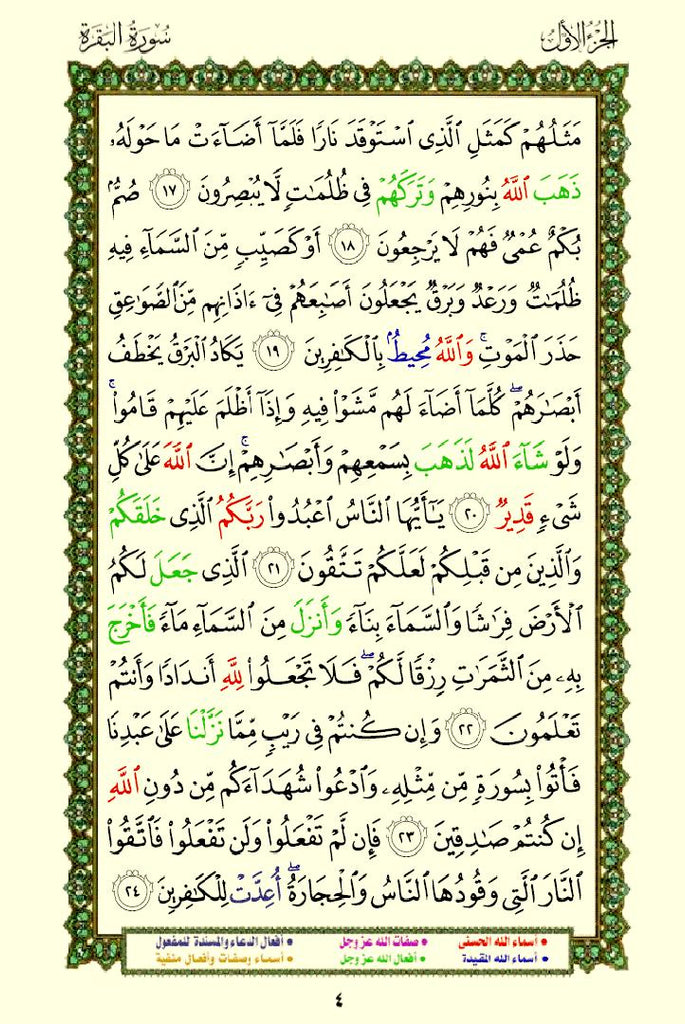 الجزء الأول
سورة البقرة
مَثَلُهُمْ كَمَثَلِ ٱلَّذِى ٱسْتَوْقَدَ نَارًا فَلَمَّآ أَضَآءَتْ مَا حَوْلَهُۥ
ذَهَبَ ٱللَّهُ بِنُورِهِمْ وَتَرَكَهُمْ فِى ظُلُمَٰتٍ لَّا يُبْصِرُونَ ١٧ صُمٌّۢ
بُكْمٌ عُمْىٌ فَهُمْ لَا يَرْجِعُونَ ١٨ أَوْ كَصَيِّبٍ مِّنَ ٱلسَّمَآءِ فِيهِ
ظُلُمَٰتٌ وَرَعْدٌ وَبَرْقٌ يَجْعَلُونَ أَصَٰبِعَهُمْ فِىٓ ءَاذَانِهِم مِّنَ ٱلصَّوَٰعِقِ
حَذَرَ ٱلْمَوْتِ ۚ وَٱللَّهُ مُحِيطٌۢ بِٱلْكَٰفِرِينَ ١٩ يَكَادُ ٱلْبَرْقُ يَخْطَفُ
أَبْصَٰرَهُمْ ۖ كُلَّمَآ أَضَآءَ لَهُم مَّشَوْا۟ فِيهِ وَإِذَآ أَظْلَمَ عَلَيْهِمْ قَامُوا۟ ۚ
وَلَوْ شَآءَ ٱللَّهُ لَذَهَبَ بِسَمْعِهِمْ وَأَبْصَٰرِهِمْ ۚ إِنَّ ٱللَّهَ عَلَىٰ كُلِّ
شَىْءٍ قَدِيرٌ ٢٠ يَٰٓأَيُّهَا ٱلنَّاسُ ٱعْبُدُوا۟ رَبَّكُمُ ٱلَّذِى خَلَقَكُمْ
وَٱلَّذِينَ مِن قَبْلِكُمْ لَعَلَّكُمْ تَتَّقُونَ ٢١ ٱلَّذِى جَعَلَ لَكُمُ
ٱلْأَرْضَ فِرَٰشًا وَٱلسَّمَآءَ بِنَآءً وَأَنزَلَ مِنَ ٱلسَّمَآءِ مَآءً فَأَخْرَجَ
بِهِۦ مِنَ ٱلثَّمَرَٰتِ رِزْقًا لَّكُمْ ۖ فَلَا تَجْعَلُوا۟ لِلَّهِ أَندَادًا وَأَنتُمْ
تَعْلَمُونَ ٢٢ وَإِن كُنتُمْ فِى رَيْبٍ مِّمَّا نَزَّلْنَا عَلَىٰ عَبْدِنَا
فَأْتُوا۟ بِسُورَةٍ مِّن مِّثْلِهِۦ وَٱدْعُوا۟ شُهَدَآءَكُم مِّن دُونِ ٱللَّهِ
إِن كُنتُمْ صَٰدِقِينَ ٢٣ فَإِن لَّمْ تَفْعَلُوا۟ وَلَن تَفْعَلُوا۟ فَٱتَّقُوا۟
ٱلنَّارَ ٱلَّتِى وَقُودُهَا ٱلنَّاسُ وَٱلْحِجَارَةُ ۖ أُعِدَّتْ لِلْكَٰفِرِينَ ٢٤
• أسماء الله الحسنى • صفات الله عز وجل • أفعال الدعاء والمسندة للمفعول
• أسماء الله المقيدة • أفعال الله عز وجل • أسماء وصفات وأفعال منفية
٤